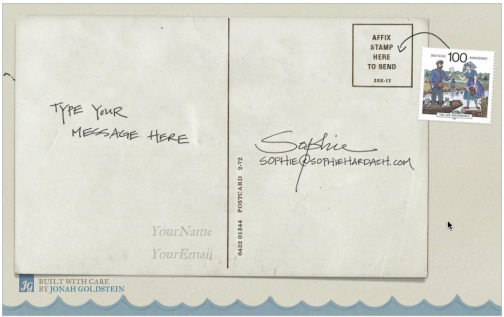 AFFIX
STAMP
HERE
TO SEND
2XX-17
100
TYPE YOUR
MESSAGE HERE
Sophie
SOPHIE@SOPHIEHARDACH.COM
0432 01344 POSTCARD 2-72
YourName
YourEmail
JG
BUILT WITH CARE
BY JONAH GOLDSTEIN